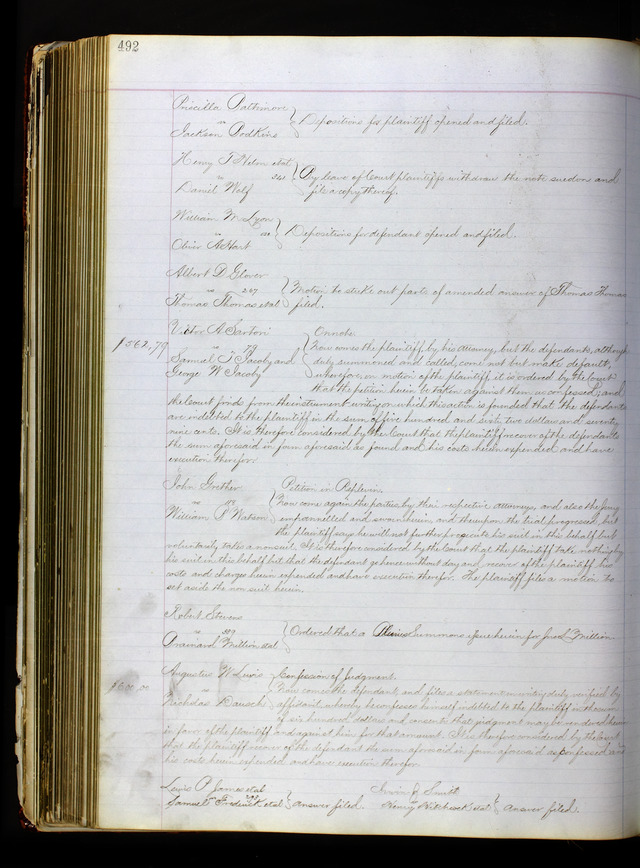 492
Priscilla
vs } Depositions for plaintiff opened and filed.
Jackson Hodkins
Henry T Helm etal
vs 241 } By leave of Court plaintiffs withdraw the note sued on and
Daniel Wolf file a copy thereof.
William M Lyon
vs } Depositions for defendant opened and filed.
Oliver A Hart
Albert D Glover
vs 207 } Motion to strike out parts of amended answer of Thomas Thomas
Thomas Thomas etal filed.
Victor A Sartori On note
$562,79 vs 79 } Now comes the plaintiff by his attorney, but the defendants, although
Samuel T Jacoby and duly summoned and called, come not but make default,
George W Jacoby wherefore, on motion of the plaintiff it is ordered by the Court
that the petition herein be taken against them as confessed, and
the Court finds from the instrument writing on which this action is founded that the defendants
are indebted to the plaintiff in the sum of five hundred and sixty two dollars and seventy
nine cents. It is therefore considered by the Court that the plaintiff recover of the defendants
the sum aforesaid in form aforesaid as found and his costs herein expended and have
execution therefor.
John Grether Petition in Replevin.
vs } Now come again the parties, by their respective attorneys, and also the jury
William P Watson empannelled and sworn herein, and thereupon the trial progresses, but
the plaintiff says he will not further prosecute his suit in this behalf but
voluntarily takes a nonsuit. It is therefore considered by the Court that the plaintiff take nothing by
his suit in this behalf but that the defendant go hence without day and recover of the plaintiff his
costs and charges herein expended and have execution therefor. The plaintiff files a motion to
set aside the non suit herein.
Robert Stevens
vs } Ordered that a Pluries Summons issue herein for Million
Million etal
Augustus W Lewis Confession of Judgment.
$600,00 vs } Now comes the defendant, and files a statement in writing duly verified by
Nicholas Bausch affidavit whereby he confesses himself indebted to the plaintiff in the sum
of six hundred dollars and consents that judgment may be rendered herein
in favor of the plaintiff and against him for that amount. It is therefore considered by the Court
that the plaintiff recover of the defendant the sum aforesaid in form aforesaid as confessed and
his costs herein expended and have execution therefor.
Lewis P James etal Irwin J Smith
Samuel Frederick etal } Answer filed. Henry Hitchcock etal } Answer filed.